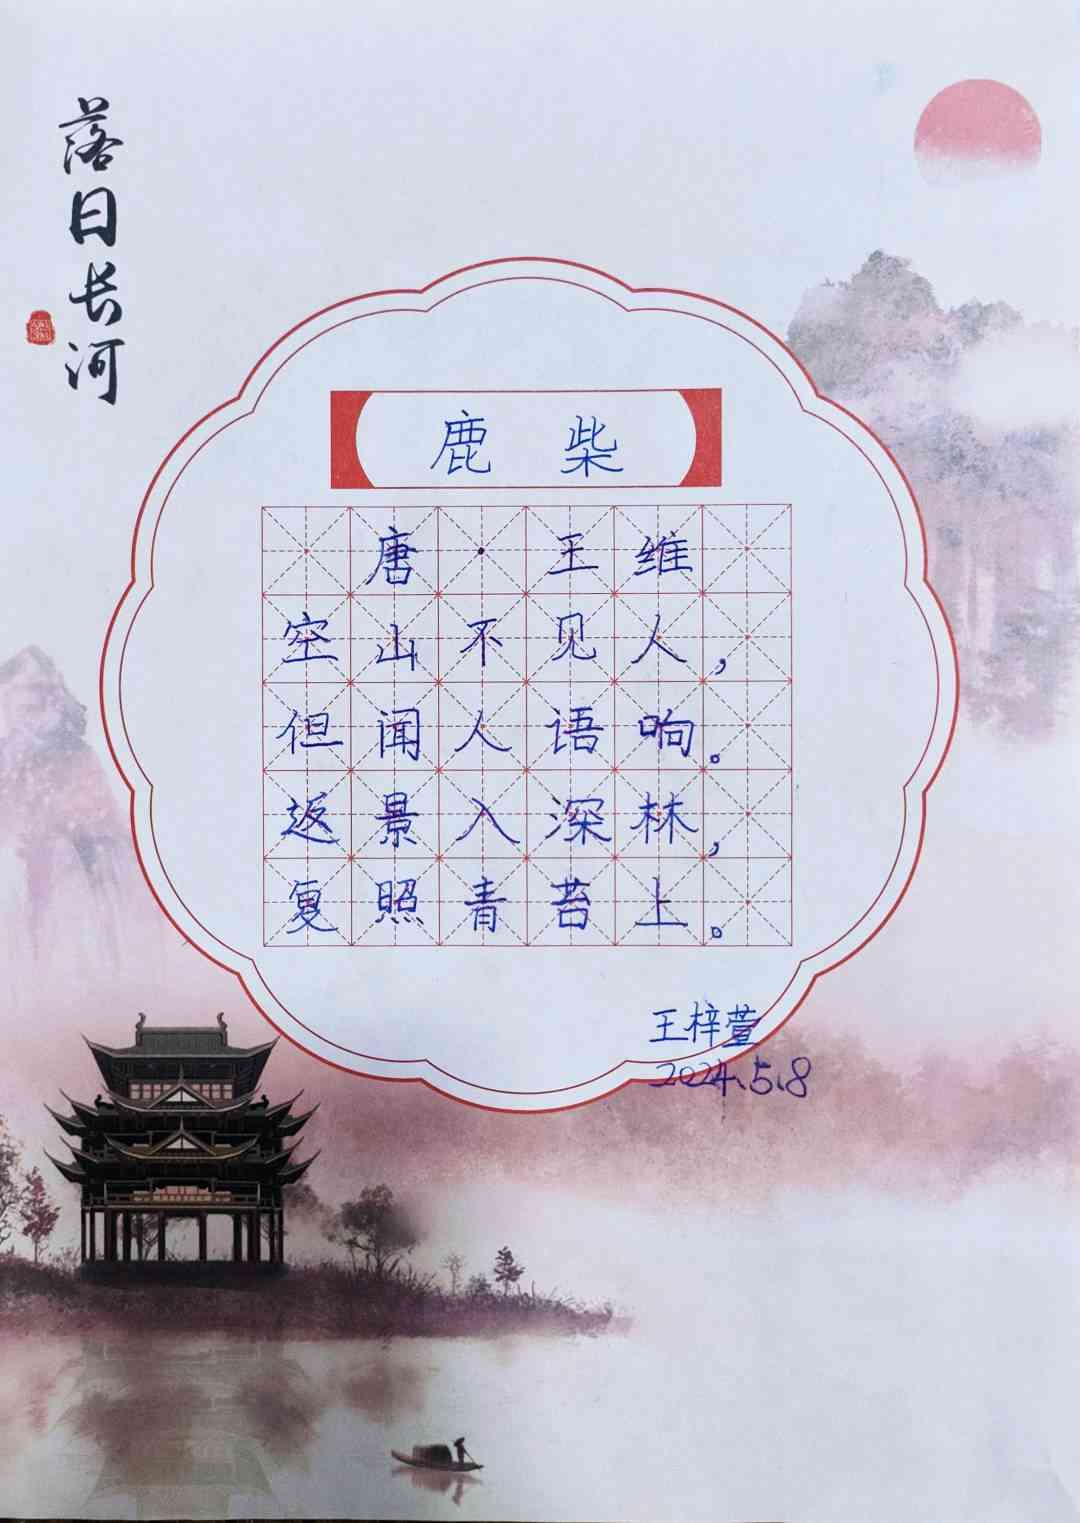 落日长河
鹿柴
唐·王维
空山不见人，
但闻人语响。
返景入深林，
复照青苔上。
王梓萱
2024.5.8